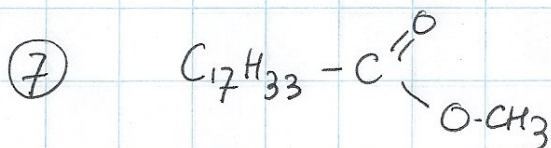 ⑦ C₁₇H₃₃ - C
O
O-CH₃